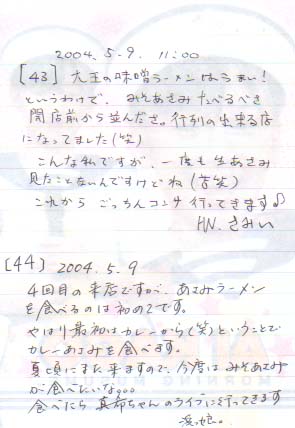 2004.5-9. 11:00
[43] 大王の味噌ラーメンはうまい!
というわけで、みそあさみたべるべき
開店前から並んださ。行列の出来る店
になってました(笑)
こんな私ですが、一度も生あさみ
見たことないんですけどね(苦笑)
これから ごっちんコンサ行ってきます♪
HN. さみい
[44] 2004.5.9
4回目の来店ですが、あさみラーメン
を食べるのは初めてです。
やはり最初はカレーから(笑)ということで
カレーあさみを食べます。
夏頃にまた来ますので、今度はみそあさみ
が食べたいな。。。
食べたら真希ちゃんのライブに行ってきます
MORNING MUSUME